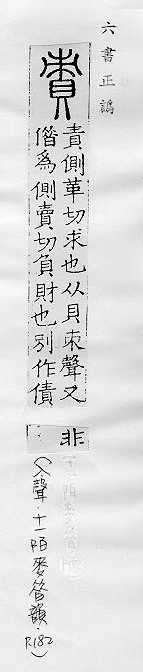 六書正譌
責
責側革切求也从貝朿聲又
借爲側賣切負財也別作債
非
(入聲·十一陌麥昔韻·R182)